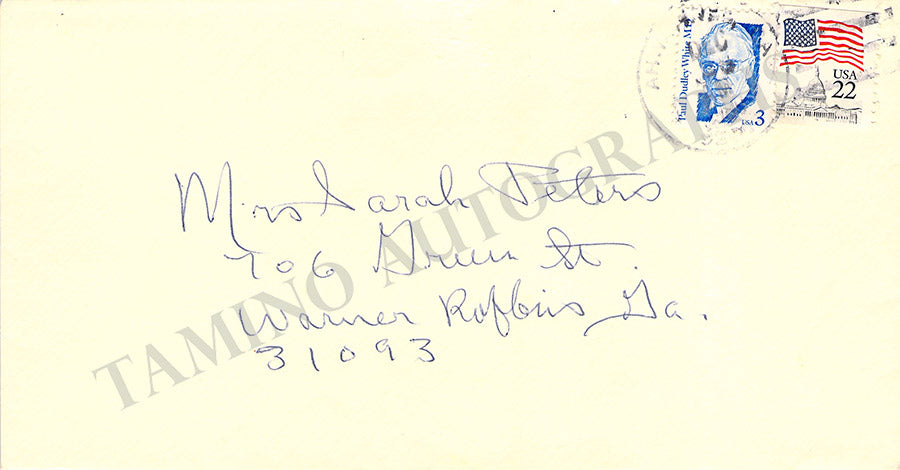 Paul Dudley White MD
USA 3
USA
22
Mrs Sarah Peters
706 Green St.
Warner Robbins, Ga.
31093
TAMINO AUTOGRAPHS